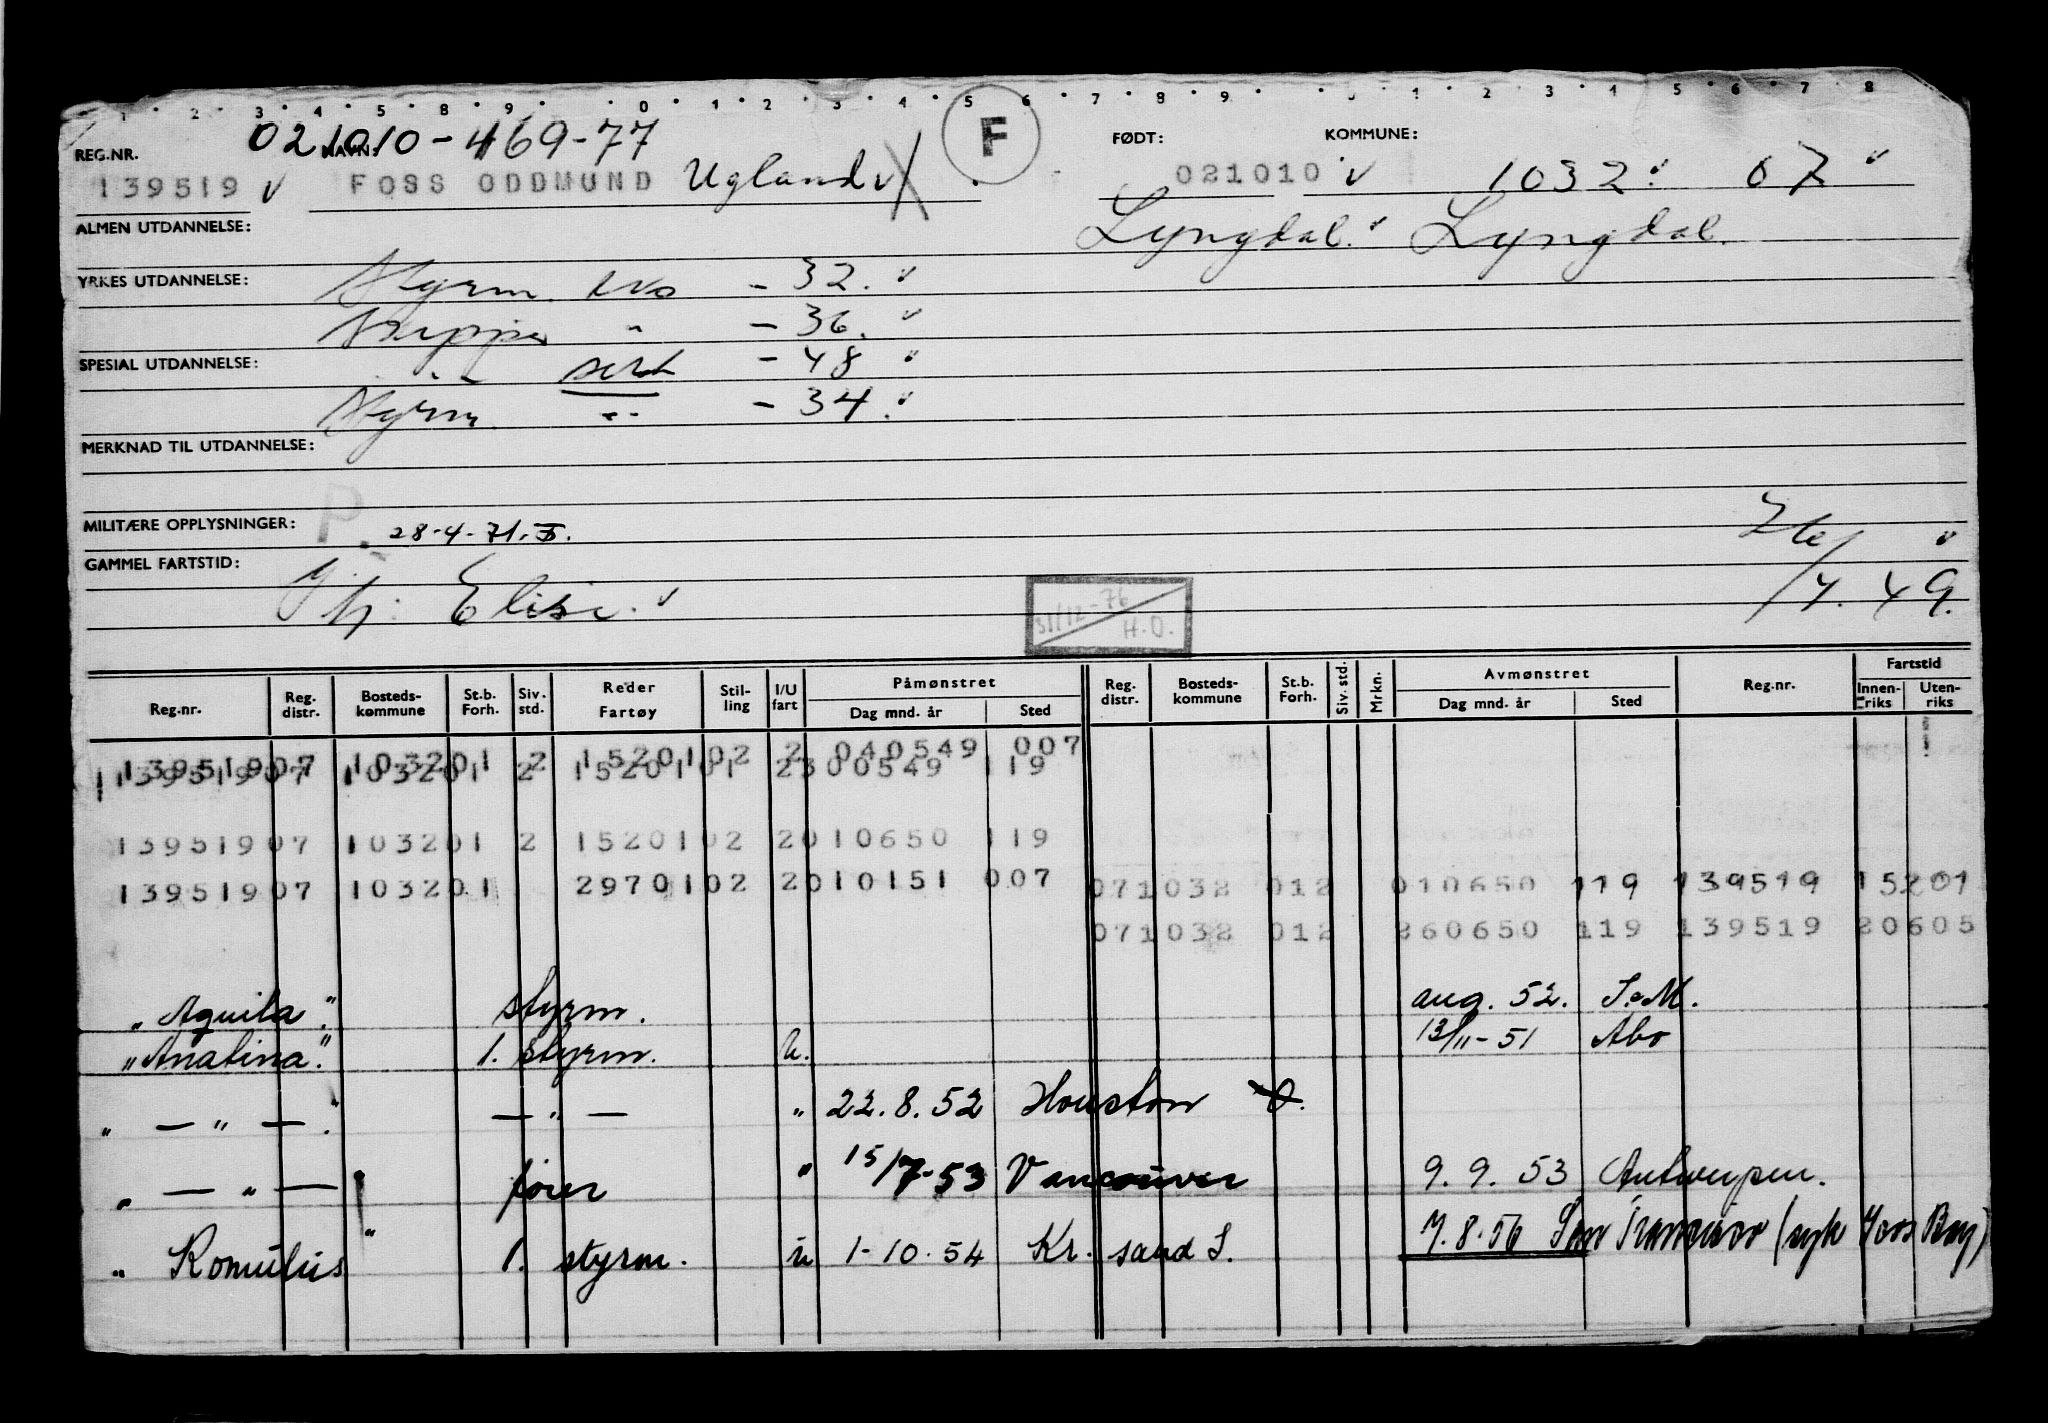 1 2 3 4 5 8 9 0 1 2 3 4 5 6 7 8 9 0 1 2 3 4 5 6 7 8
021010-469-77
REG.NR. NAVN: F FØDT: KOMMUNE:
139519 v FOSS ODDMUND Ugland 021010 v 1032 07
ALMEN UTDANNELSE: Lyngdal. Lyngdal.
YRKES UTDANNELSE: Styrm. - 32.
Skipper " - 36.
SPESIAL UTDANNELSE: " sert - 48
Styrm - 34.
MERKNAD TIL UTDANNELSE:
MILITÆRE OPPLYSNINGER: P. 28-4-71.
GAMMEL FARTSTID:
Elise. 31/12-76 H.O. /4. 49.
Reg.nr. Reg. distr. Bosteds- kommune St.b. Forh. Siv. std. Reder Fartøy Stil- ling I/U fart Påmønstret Dag mnd. år Sted Reg. distr. Bosteds- kommune St.b. Forh. Siv. std. Mrkn. Avmønstret Dag mnd. år Sted Reg.nr. Fartstid Innen- riks Uten- riks
13951907 103201 2 1520102 2 040549 007
13951907 103201 2 1520101 2300549 119
13951907 103201 2 1520102 2010650 119
13951907 103201 2970102 2010151 007 071032 012 010650 119 139519 15201
071032 012 260650 119 139519 20605
"Aquila". styrm. aug. 52. S.M.
"Anatina". 1. styrm. u. 13/11-51 Abo
" — " — ". — " — " 22.8.52 Houston
" — " — " fører " 15/7-53 Vancouver 9.9.53 Antwerpen.
"Romulus" 1. styrm. u 1-10.54 Kr. sand S. 7.8.56 San Francisco (syk Coos Bay)